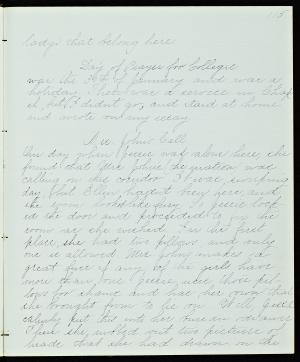 115
lady's that belong here.
Day of Prayer for Colleges
was the 29 of January and was a
holiday. There was a service in Chap
el, but I didn't go, and staid at home
and wrote on my essay.
Mrs. John's Call
One day when Jessie was alone here, she
found that Mrs. John in question was
calling on the corridor. It was sweeping
day, but Ellen hadn't been here, and
the room looked like fury. So Jessie lock
ed the door and proceeded to fix the
room as she wished. In the first
place, she had two pillows, and only
one is allowed. Mrs. John makes a
great fuss if any of the girls have
more than one. Jessie uses those pil
lows for change and was her own that
she brought from home. Well, Jessie
calmly put this into her room
Then she up two pictures of
heads that she had drawn in the